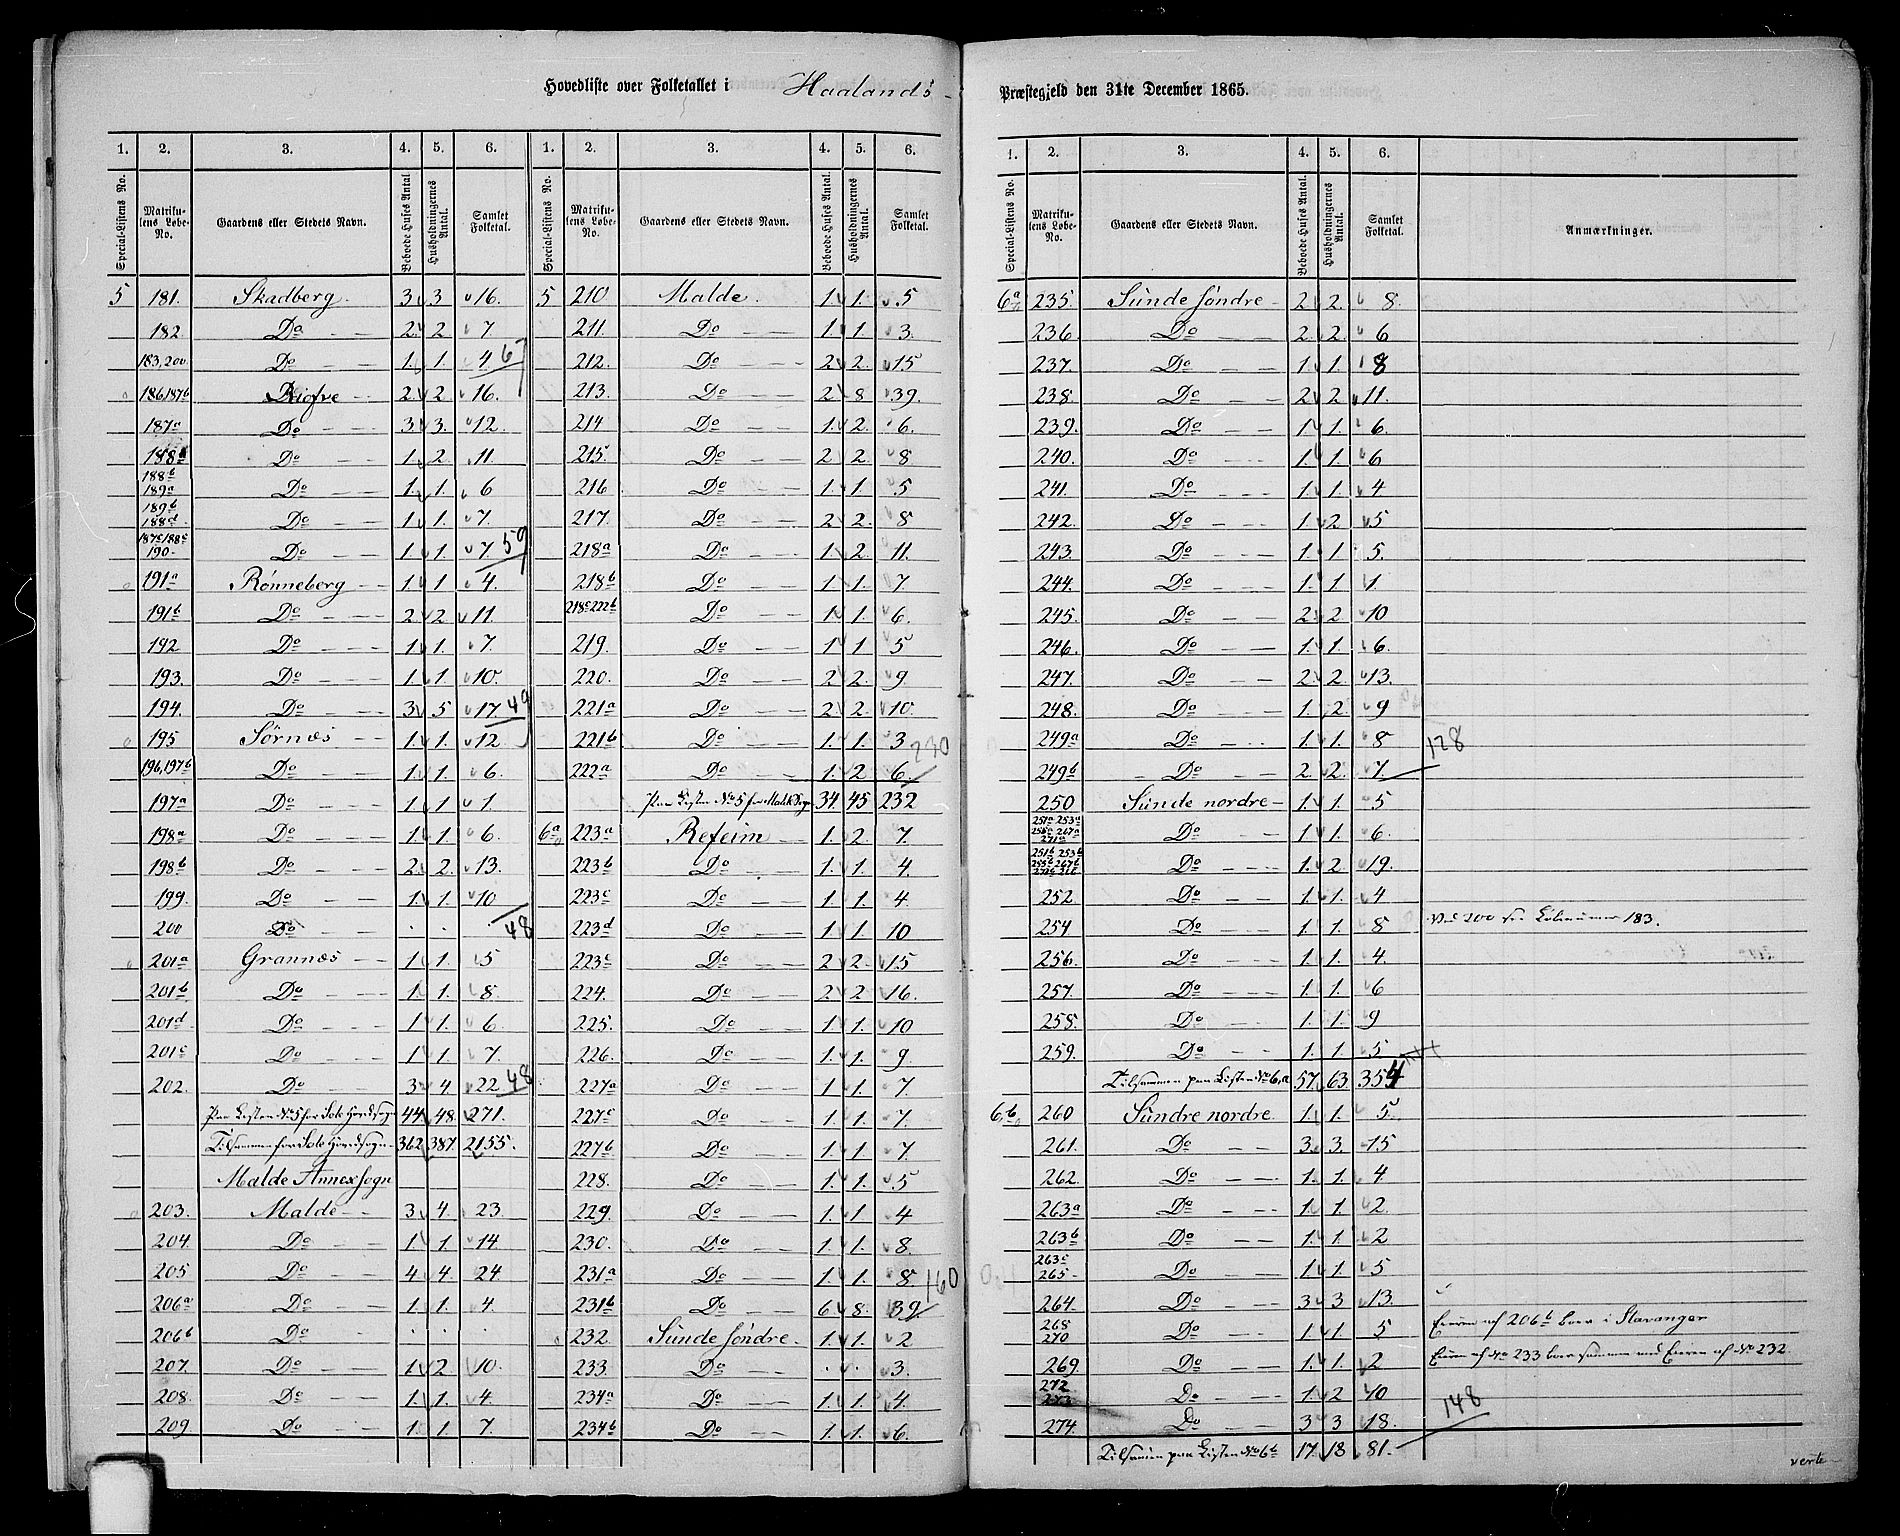 Hovedliste over Folketallet i Haalands-
Præstegjeld den 31te December 1865.
1. 2. 3. 4. 5. 6. 1. 2. 3. 4. 5. 6.
Special-Listens No. Matrikulens Løbe-No. Gaardens eller Stedets Navn. Beboede Huses Antal. Husholdningernes Antal. Samlet Folketal. Special-Listens No. Matrikulens Løbe-No. Gaardens eller Stedets Navn. Beboede Huses Antal. Husholdningernes Antal. Samlet Folketal.
5 181. Skadberg. 3 3 16. 5 210 Malde. 1 1. 5
182. Do 2. 2. 7. 211. Do 1. 1 3.
183,200. Do 1. 1. 4 67 212. Do 2 2. 15
186,187b Riofre 2 2 16. 213. Do 2 8 39.
187a Do 3 3. 12. 214 Do 1. 2. 6.
188a Do 1. 2 11. 215. Do 2 2. 8.
188b 189a Do 1. 1. 6 216 Do 1. 1. 5
189b 188d. Do 1. 1. 7. 217. Do 2 2. 8
187c 188c 190. Do 1. 1. 7. 59 218a Do 1. 2. 11.
191a Rønneberg 1. 1 4. 218b Do 1. 1. 7
191b Do 2 2. 11. 218c 222b Do 1. 1. 6.
192 Do 1. 1. 7. 219. Do 1. 1 5
193. Do 1. 1. 10. 220. Do 2 2. 9
194. Do 3. 5 17 49 221a Do 2. 2. 10.
195 Sørnæs 1. 1. 12. 221b Do 1. 1. 3 230
196,197b Do 1. 1. 6. 222a Do 1. 2 6.
197a Do 1. 1 1. Paa Listen No 5 for Malde Sogn 34. 45 232
198a Do 1. 1. 6. 6a 223a Refeim 1. 2. 7.
198b Do 2. 2. 13. 223b Do 1. 1. 4
199. Do 1. 1. 10 223c Do 1. 1 4
200 Do . . . 48 223d Do 1. 1. 10
201a Grannæs 1. 1. 5 223e Do 2 2. 15
201b Do 1. 1. 8. 224. Do 2 2 16.
201d. Do 1. 1. 6 225. Do 1. 1. 10
201c Do 1. 1. 7. 226. Do 1. 1. 9
202. Do 3 4. 22 48 227a Do 1. 1. 7
Paa Listen No 5 for Sole Hovedsogn 44. 48. 271. 227c Do 1. 1. 7.
Tilsammen for Sole Hovedsogn 362 387. 2155. 227b Do 1. 1. 7
Malde Annexsogn 228. Do 1. 1. 5
203. Malde 3 4. 23 229. Do 1. 1 4
204. Do 1. 1. 14. 230. Do 1. 1. 8.
205 Do 4. 4. 24 231a Do 1. 1. 8. 160
206a Do 1. 1. 4. 231b Do 6 8. 39.
206b Do . . . 232. Sunde søndre 1. 1. 2
207. Do 1. 2 10. 233. Do . . 3.
208. Do 1. 1. 4. 234a Do 1. 1. 4.
209. Do 1. 1. 7. 234b Do 1. 1. 6.
1. 2. 3. 4. 5. 6.
Special-Listens No. Matrikulens Løbe-No. Gaardens eller Stedets Navn. Beboede Huses Antal. Husholdningernes Antal. Samlet Folketal. Anmærkninger.
6a 235. Sunde søndre 2 2. 8.
236. Do 2. 2. 6
237. Do 1. 1. 8
238. Do 2 2 11.
239. Do 1. 1. 6.
240. Do 1. 1. 6
241. Do 1. 1. 4
242. Do 1. 2 5
243. Do 1. 1 5.
244. Do 1. 1. 1.
245. Do 2. 2 10
246. Do 1. 1. 6.
247. Do 2. 2. 13.
248. Do 1. 2. 9
249a Do 1. 1. 8 128
249b Do 2. 2. 7.
250 Sunde nordre 1. 1. 5
251a 253a 255a 267a 271a Do 1. 1. 6.
Do 1. 2. 19.
252. Do 1. 1. 4
254 Do 1. 1. 8 Ved 200 see Løbenummer 183.
256. Do 1. 1. 4.
257. Do 1. 1. 6
258. Do 1. 1. 9
259. Do 1. 1. 5
Tilsammen paa Listen No 6,a 57. 63 354
6,b 260 Sundre nordre. 1. 1. 5.
261. Do 3. 3. 15
262. Do 1. 1. 4
263a Do 1. 1 2.
263b Do 1. 1. 2
263c 265 Do 1. 1. 5
264. Do 3 3 13.
268 270 Do 1. 1. 5 Eieren af 206b boer i Stavanger
269. Do 1. 1. 2 Eieren af No 233 boer sammen med Eieren af No 232.
272 273 Do 1. 2 10
274. Do 3 3 18. 148
Tilsammen paa Listen No 6b 17. 18 81.
verte